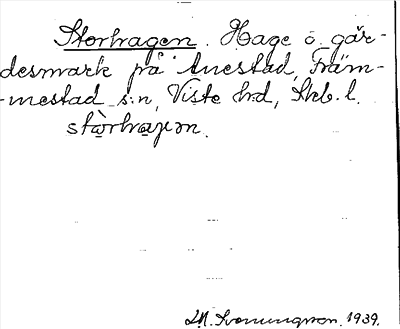 Storhagen. Hage o. gär-
desmark på Anestad, Främ-
-mestad s:n, Viste h:d, Skb. l.
stòrhaɡən.
1939.